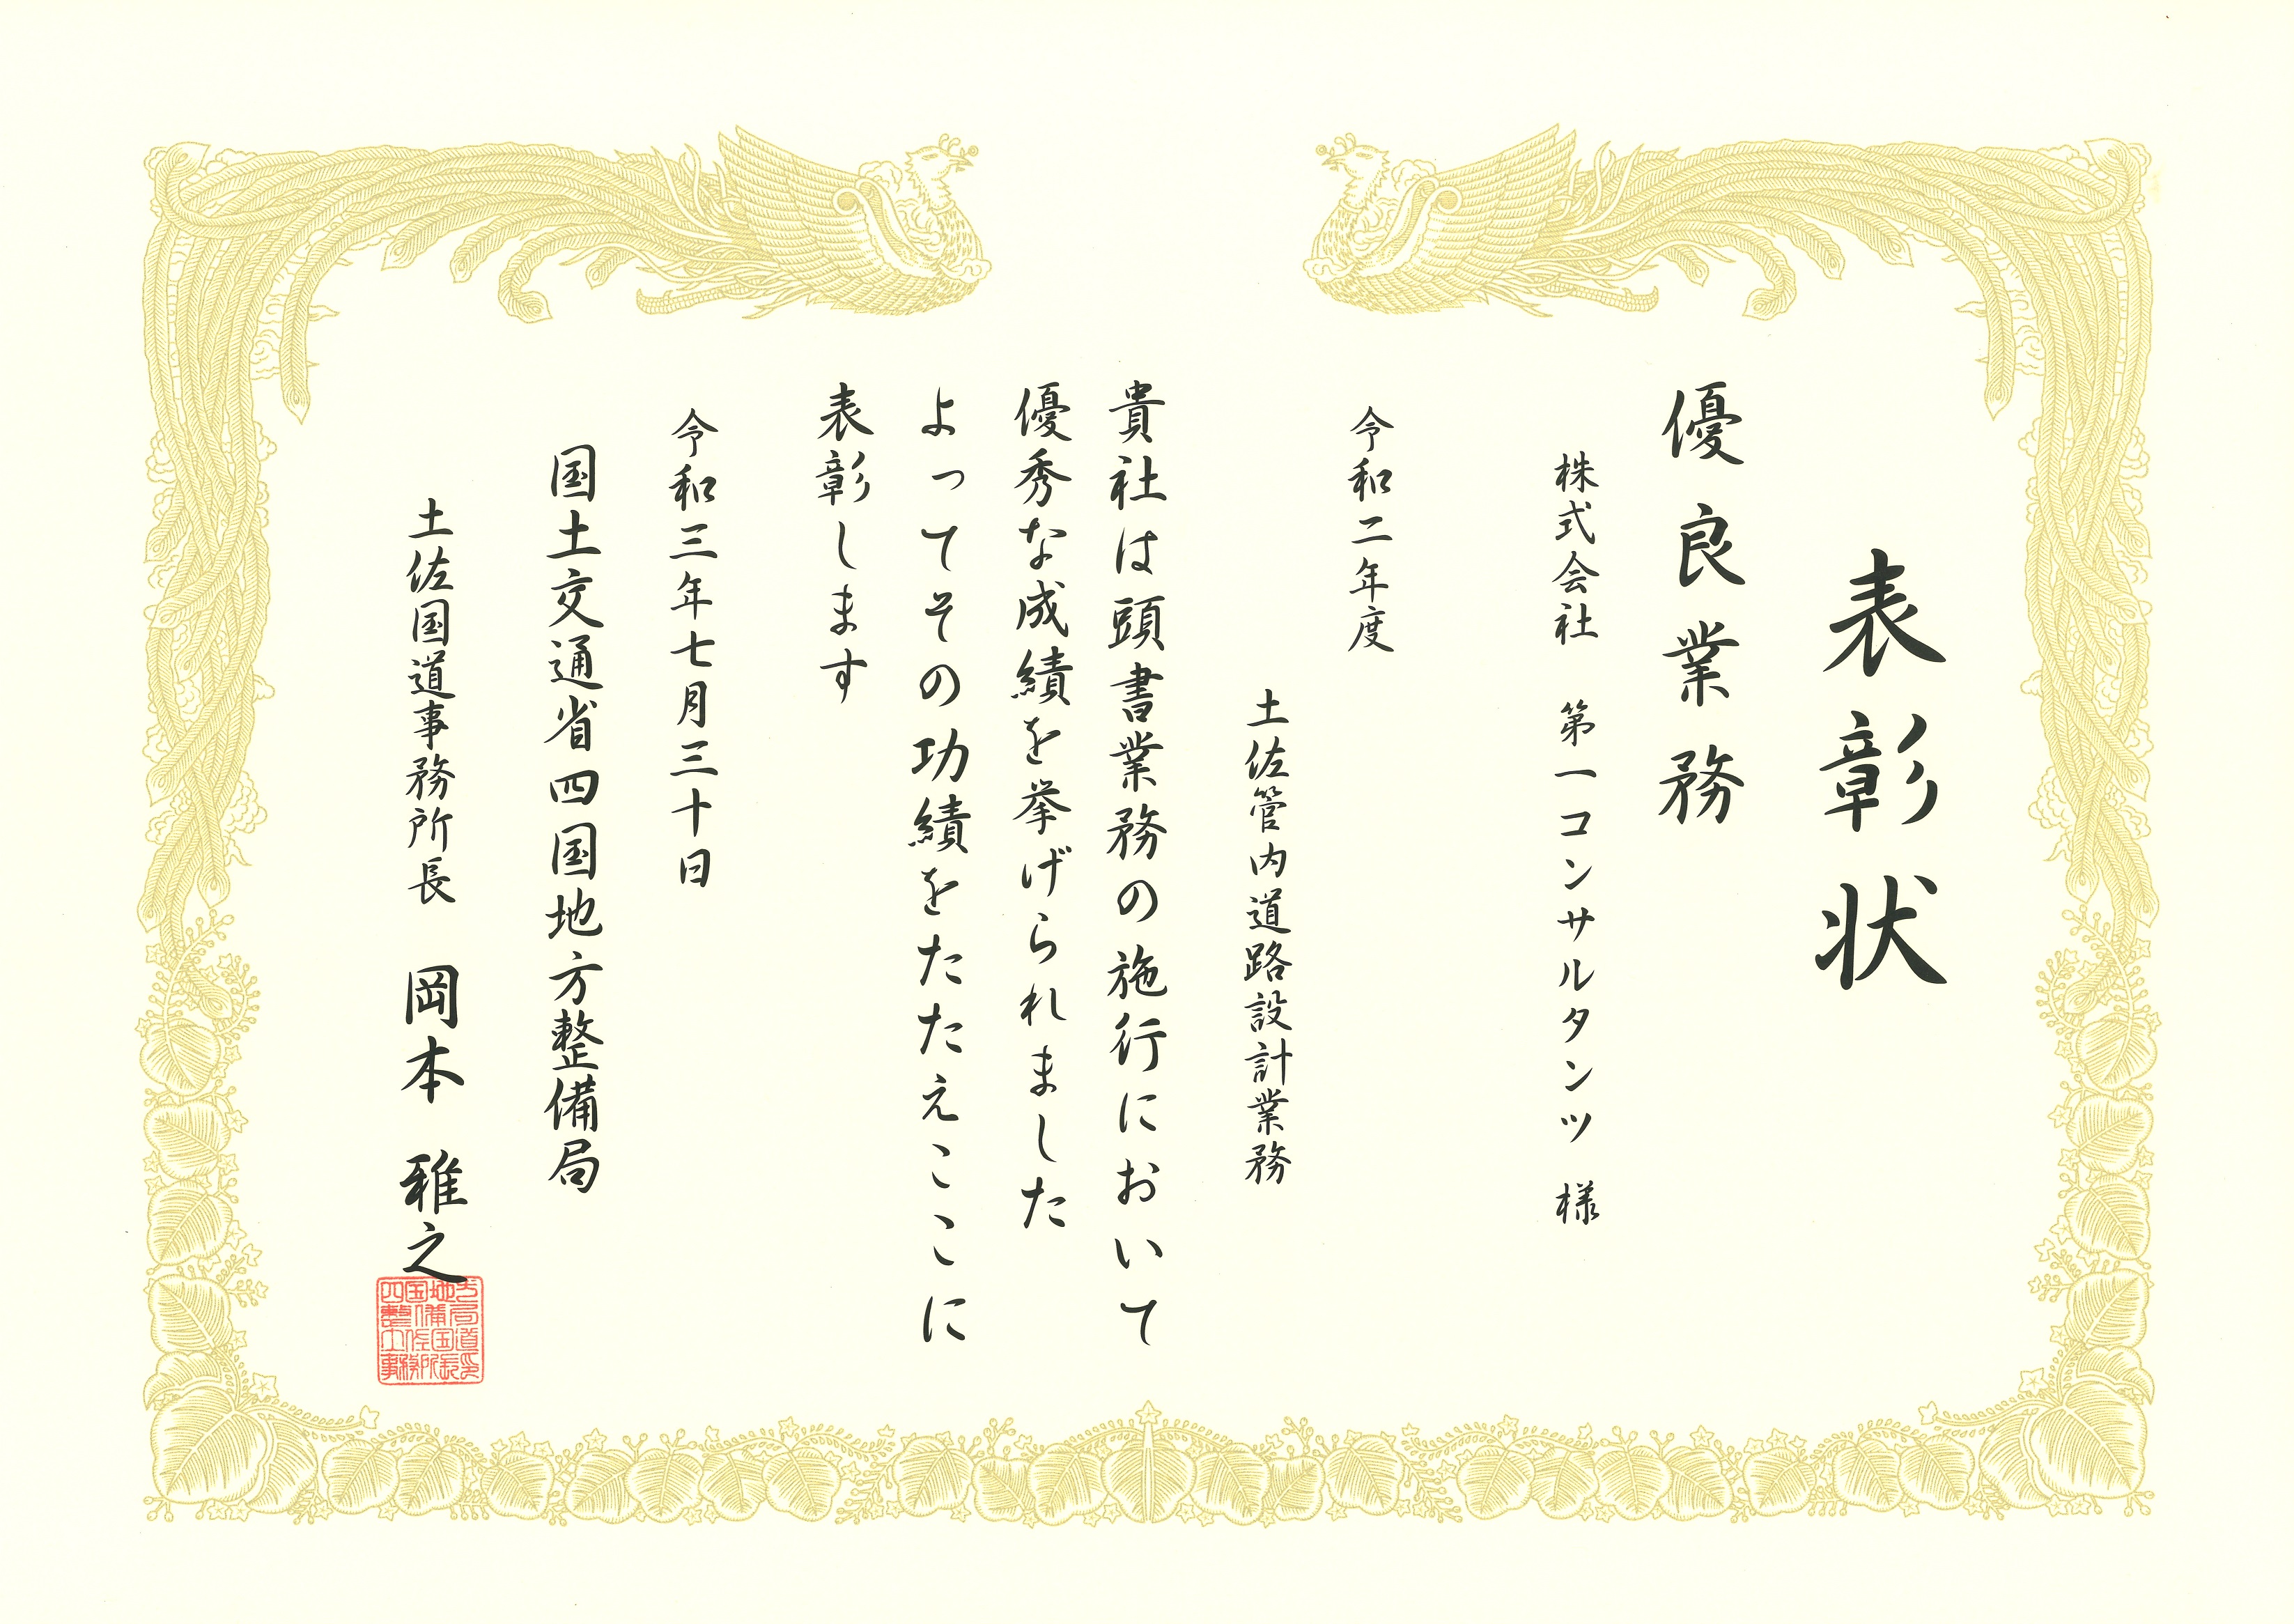 表彰状
優良業務
株式会社 第一コンサルタンツ 様
令和二年度
土佐管内道路設計業務
貴社は頭書業務の施行において
優秀な成績を挙げられました
よってその功績をたたえここに
表彰します
令和三年七月三十日
国土交通省四国地方整備局
土佐国道事務所長 岡本 雅之
四国地方
整備局
土佐国道
事務所長印